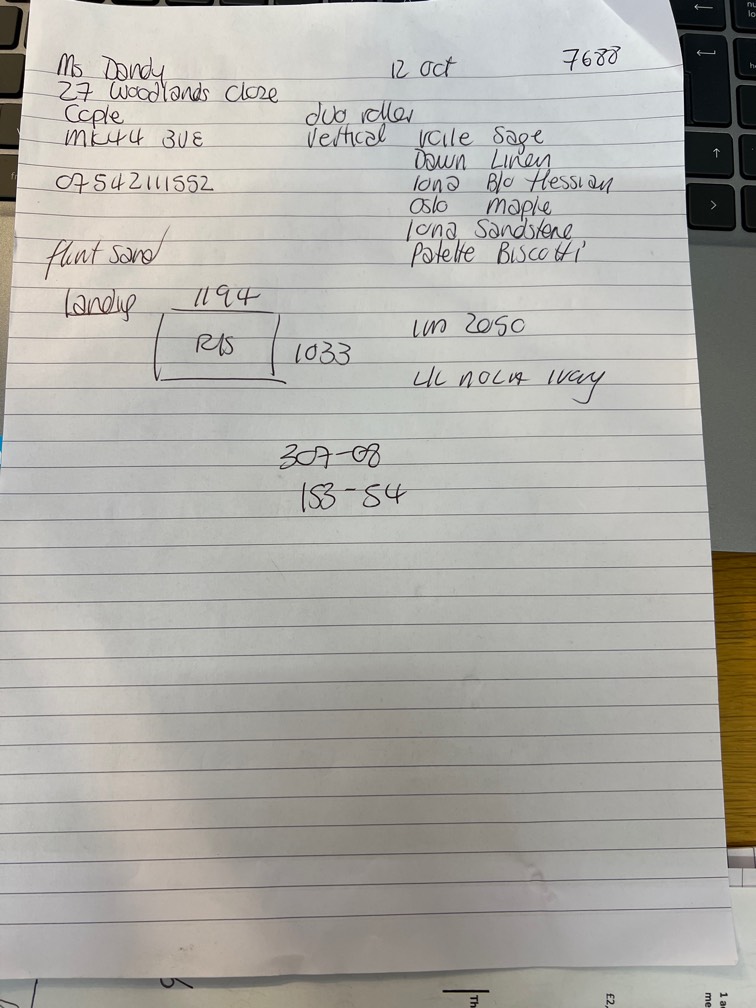 Ms Dandy 12 Oct 7688
27 Woodlands Close
Cople duo roller
MK44 3UE Vertical Voile Sage
Dawn Linen
07542111552 Iona B/o Hessian
Oslo Maple
Iona Sandstone
flint sand Palette Biscotti
landing 1194
R/S 1033 um 2050
LIL NOLA Ivory
307-08
153-54
Th
£2,